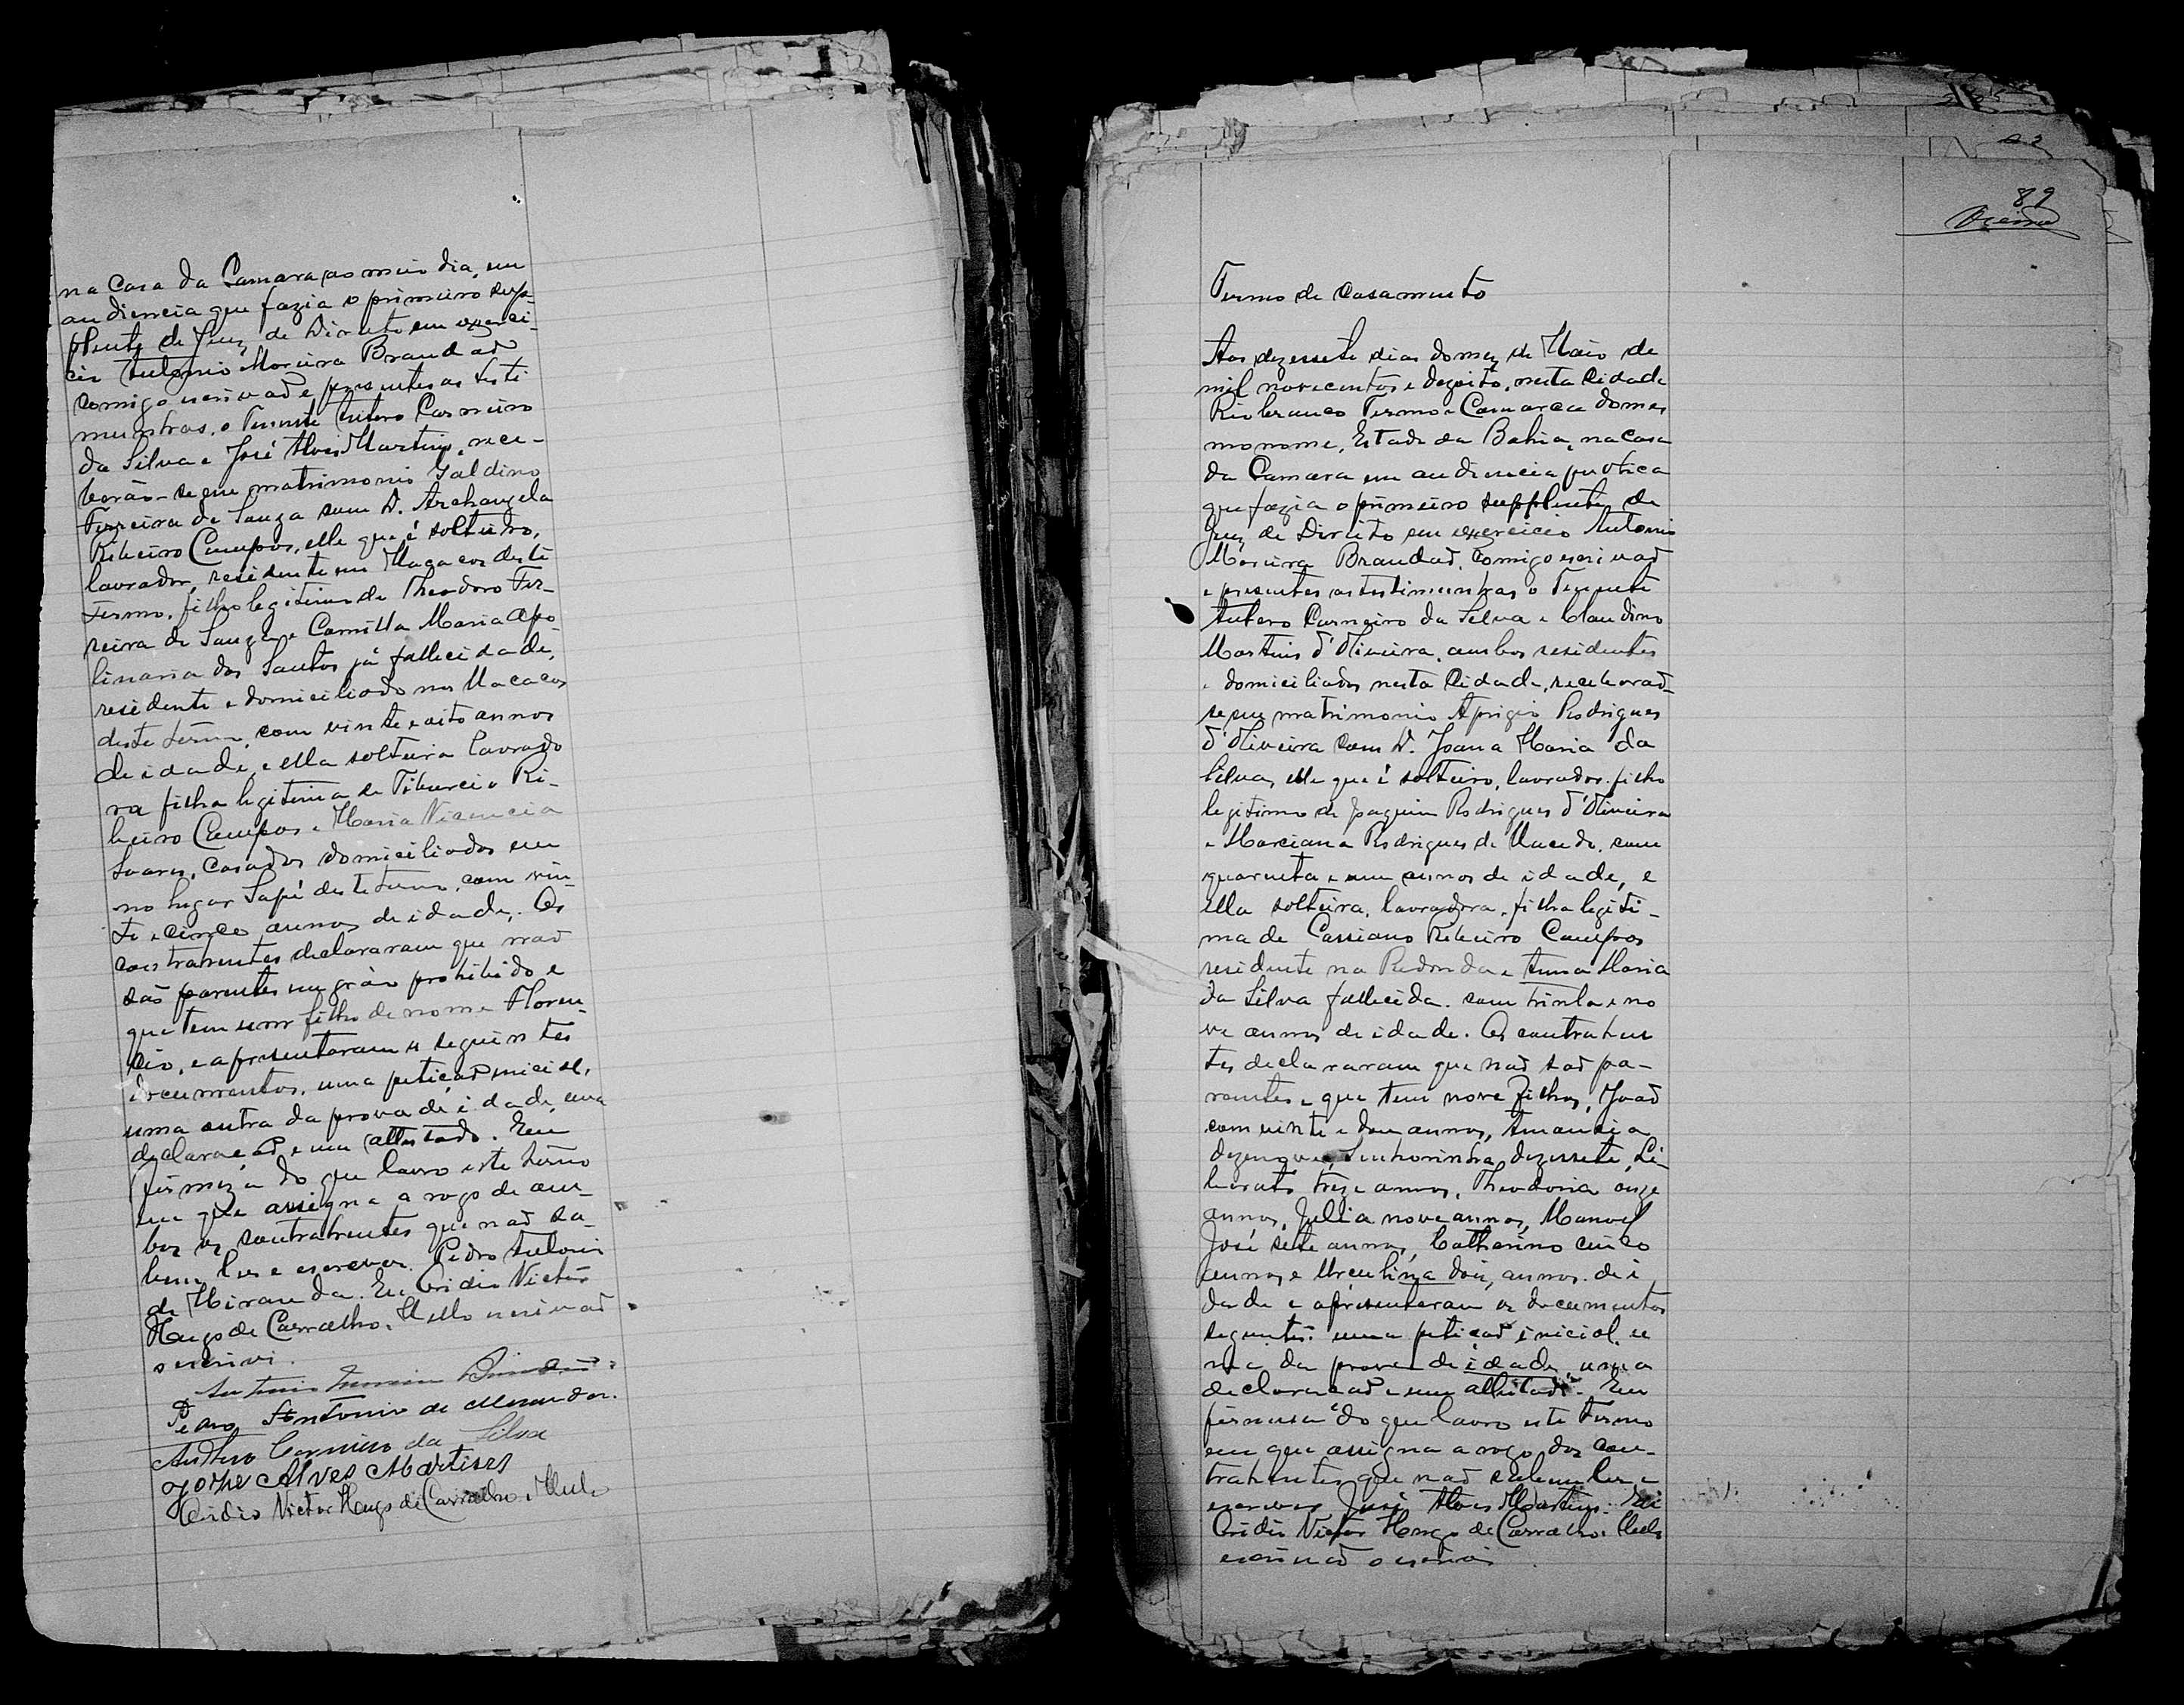 na Casa da Camara, ao meio dia, em
audiencia que fazia o primeiro sup-
plente de Juiz de Direito em exerci-
cio Antonio Moreira Brandaõ
comigo escrivaõ e presentes as teste
munhas, o Tenente Antero Carneiro
da Silva e José Alves Martins, rece-
berão-se em matrimonio Galdino
Ferreira de Souza com D. Archangela
Ribeiro Campos, elle que é solteiro,
lavrador, residente em Macacos deste
termo, filho legitimo de Theodoro Fer-
reira de Souza e Camilla Maria Apo-
linaria dos Santos já fallecida de,
residente e domiciliado nos Macacos
deste termo, com vinte e oito annos
de idade, e ella solteira lavrado
ra filha legitima de Tiburcio Ri-
beiro Campos e Maria Vicencia
Soares, Casados domiciliados em
no lugar Sapé deste termo, com vin-
te e cinco annos de idade. Os
contrahentes declararam que naõ
saõ parentes em gráo prohibido e
que tem um filho de nome Floren-
cio, e apresentaram os seguintes
documentos, uma petiçaõ inicial,
uma outra da prova de idade, uma
declaraçaõ e um attestado. Em
firmeza do que lavro este termo
em que assigna a rogo de am-
bos os contrahentes que naõ sa-
bem ler e escrever. Pedro Antonio
de Miranda. Eu Ovidio Victor
Hugo de Carvalho e Mello escrivaõ
o escrivi.
Antonio Moreira Brandaõ
Pedro Antonio de Miranda.
Antero Carneiro da Silva
José Alves Martins
Ovidio Victor Hugo de Carvalho e Mello
89
Termo de Casamento
Aos dezessete dias do mez de Maio de
mil novecentos e dezoito, nesta Cidade
Rio branco Termo e Comarca do mes
mo nome, Estado da Bahia, na casa
da Camara em audiencia publica
que fazia o primeiro supplente de
Juiz de Direito em exercicio Antonio
Moreira Brandaõ, comigo escrivaõ
e presentes as testimunhas o Tenente
Antero Carneiro da Silva e Claudino
Martins d'Oliveira, ambos residentes
e domiciliados nesta Cidade, receberaõ-
se em matrimonio Aprigio Rodrigues
d'Oliveira com D. Joana Maria da
Silva, elle que é solteiro, lavrador, filho
legitimo de Joaquim Rodrigues d'Oliveira
e Marciana Rodrigues de Macedo, com
quarenta e um annos de idade, e
ella solteira, lavradora, filha legiti-
ma de Cassiano Ribeiro Campos
residente na Redonda e Anna Maria
da Silva fallecida. com trinta e no
ve annos de idade. Os contrahen
tes declararam que naõ saõ pa-
rentes e que tem nove filhos, Joaõ
com vinte e dous annos, Amancia
dezenove, Senhorinha dezessete, Li-
berato treze annos, Theodoria onze
annos, Julia nove annos, Manoel
José sete annos, Catharino cinco
annos e Urculina dois, annos. de i
dade e apresentaram os documentos
seguintes: uma petiçaõ inicial, u
ma da prova de idade, uma
declaraçaõ e um attestado. Em
firmesa do que lavro este termo
em que assigna a rogo dos con-
trahentes que naõ sabem ler e
escrever José Alves Martins. Eu
Ovidio Victor Hugo de Carvalho e Mello
escrivaõ o escrivi